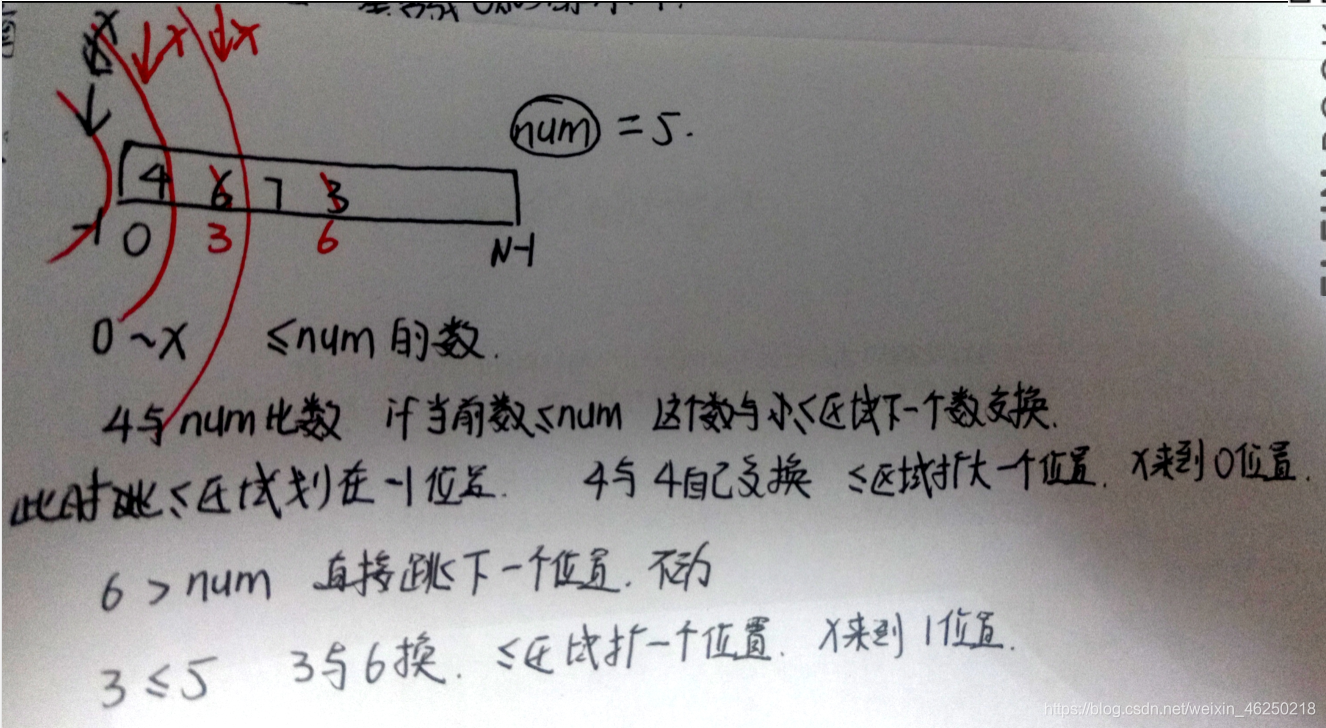 x x x
num = 5.
4 6 7 3
-1 0 3 6 N-1
0 ~ x ≤num 的数.
4与num比数 if当前数≤num 这个数与小≤区域下一个数交换.
此时 ≤区域划在 -1位置. 4与4自己交换 ≤区域扩大一个位置. x来到0位置.
6 > num 直接跳下一个位置. 不动
3 ≤ 5 3与6换. ≤区域扩一个位置. x来到1位置.
https://blog.csdn.net/weixin_46250218